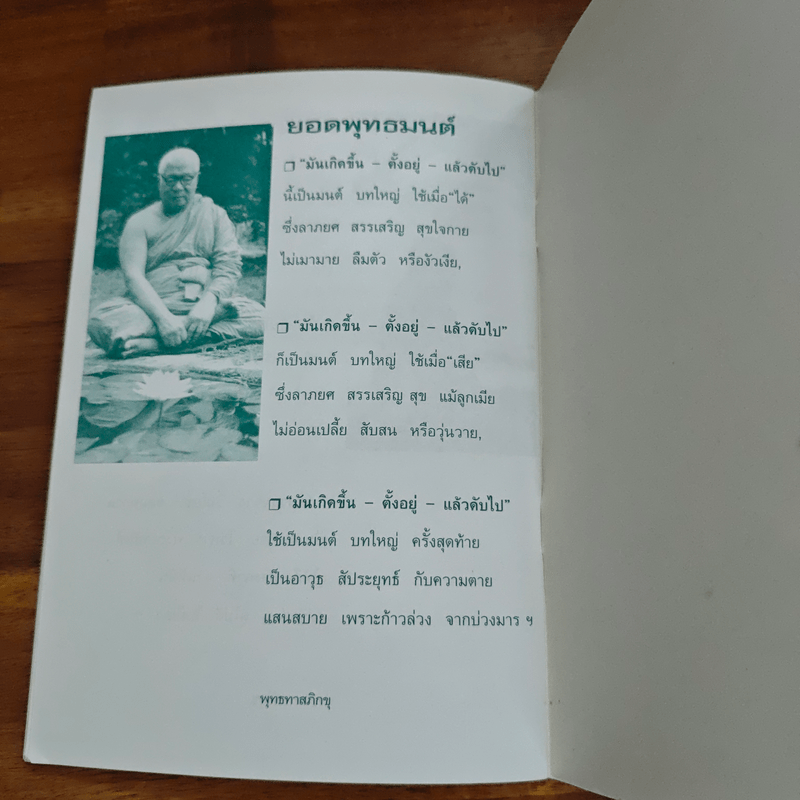 ยอดพุทธมนต์
❒ “มันเกิดขึ้น – ตั้งอยู่ – แล้วดับไป”
นี้เป็นมนต์ บทใหญ่ ใช้เมื่อ“ได้”
ซึ่งลาภยศ สรรเสริญ สุขใจกาย
ไม่เมามาย ลืมตัว หรืองัวเงีย,
❒ “มันเกิดขึ้น – ตั้งอยู่ – แล้วดับไป”
ก็เป็นมนต์ บทใหญ่ ใช้เมื่อ“เสีย”
ซึ่งลาภยศ สรรเสริญ สุข แม้ลูกเมีย
ไม่อ่อนเปลี้ย สับสน หรือวุ่นวาย,
❒ “มันเกิดขึ้น – ตั้งอยู่ – แล้วดับไป”
ใช้เป็นมนต์ บทใหญ่ ครั้งสุดท้าย
เป็นอาวุธ สัประยุทธ์ กับความตาย
แสนสบาย เพราะก้าวล่วง จากบ่วงมาร ฯ
พุทธทาสภิกขุ